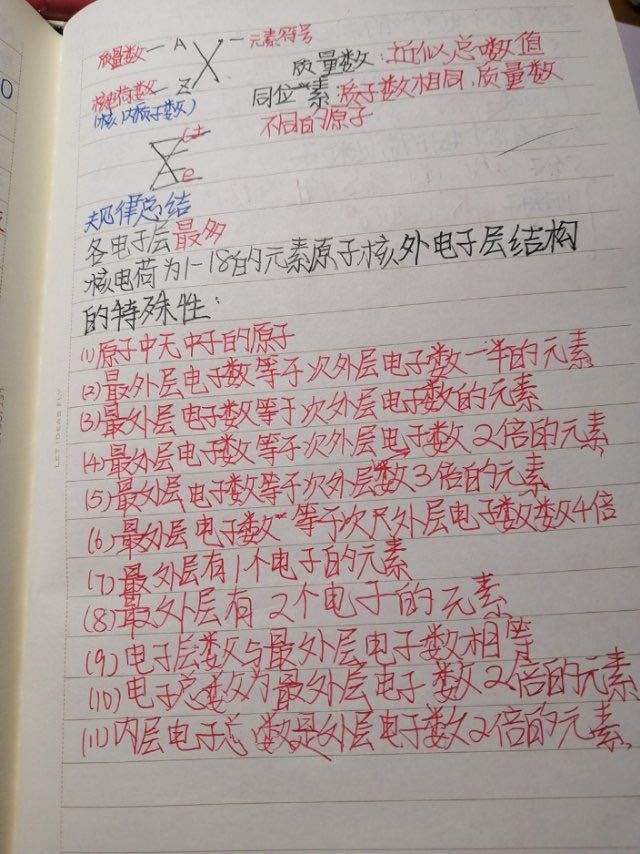 质量数—A X —元素符号
核电荷数—Z
(核内质子数)
质量数:近似总数值
同位素:质子数相同,质量数
不同的原子
规律总结
各电子层最多
核电荷为1-18的元素原子核外电子层结构
的特殊性:
(1)原子中无中子的原子
(2)最外层电子数等于次外层电子数一半的元素
(3)最外层电子数等于次外层电子数的元素
(4)最外层电子数等于次外层电子数2倍的元素
(5)最外层电子数等于次外层数3倍的元素
(6)最外层电子数等于次外层电子数数4倍
(7)最外层有1个电子的元素
(8)最外层有2个电子的元素
(9)电子层数与最外层电子数相等
(10)电子总数为最外层电子数2倍的元素
(11)内层电子总数是外层电子数2倍的元素
LET IDEAS FLY